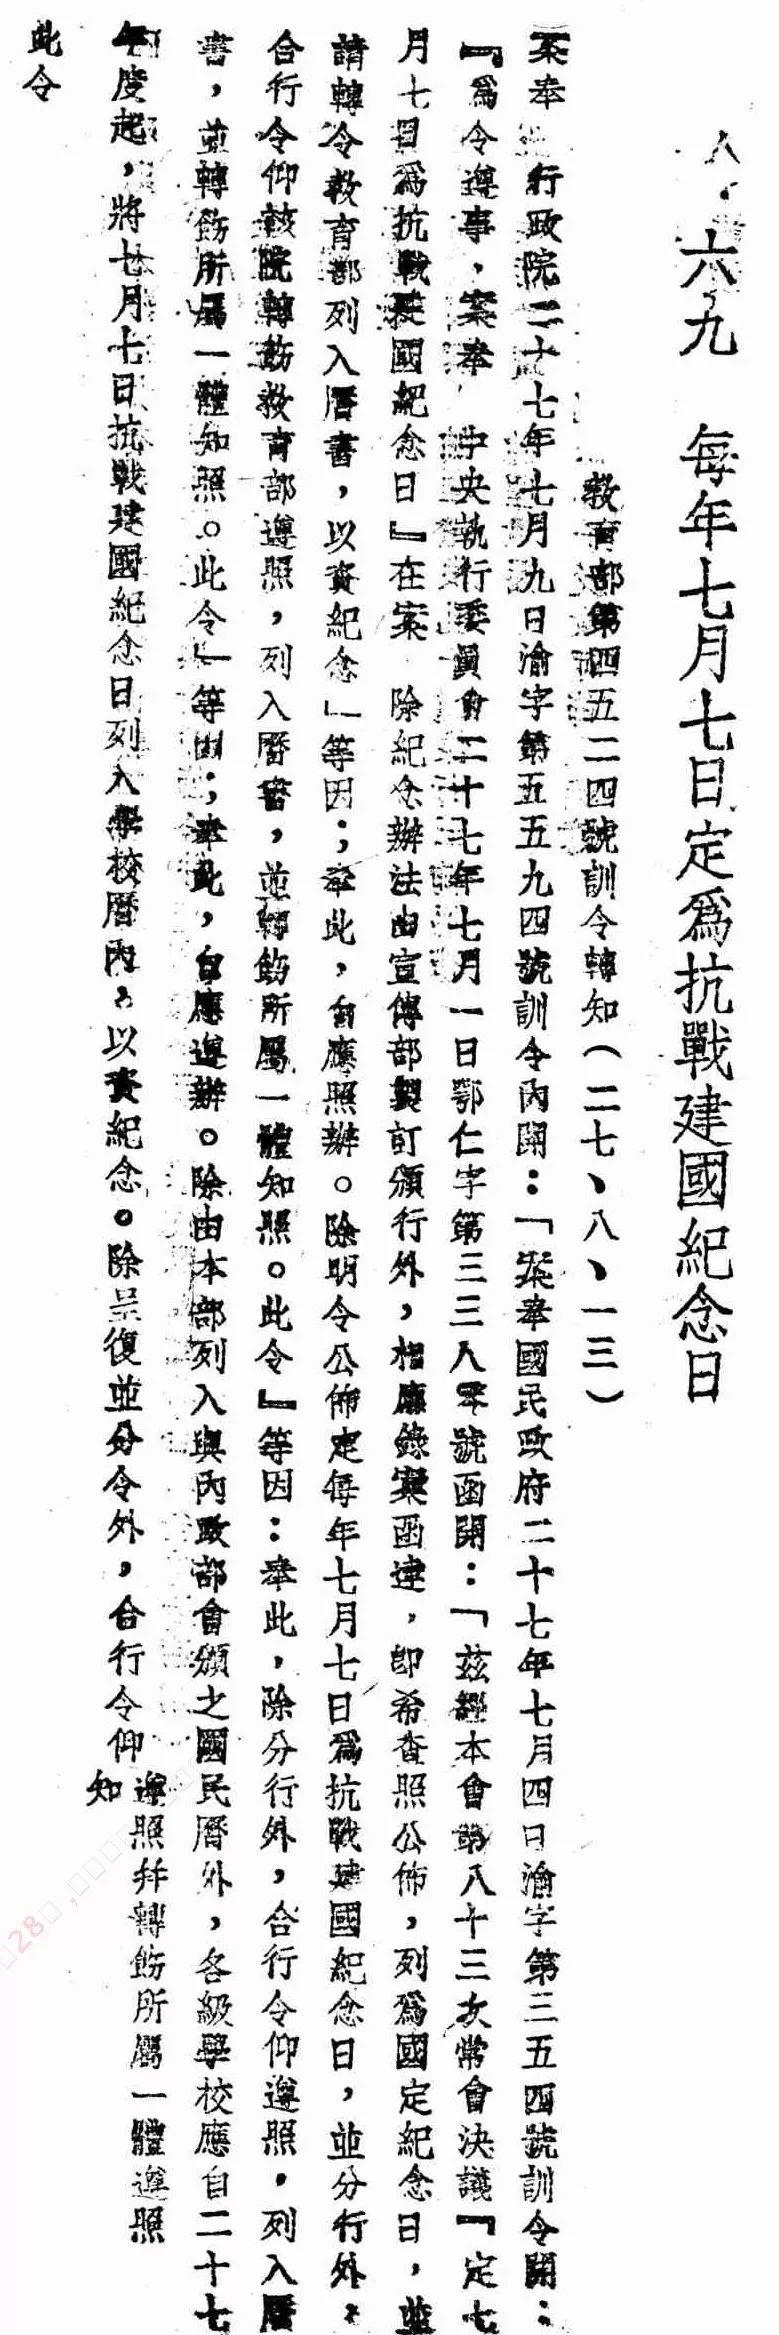 八·六九　每年七月七日定爲抗戰建國紀念日
教育部第四五二四號訓令轉知（二七、八、一三）
案奉　行政院二十七年七月九日渝字第五五九四號訓令內開：「案奉國民政府二十七年七月四日渝字第三五四號訓令開：
『爲令遵事，案奉　中央執行委員會二十七年七月一日鄂仁字第三三八零號函開：「茲經本會第八十三次常會決議『定七
月七日爲抗戰建國紀念日』在案　除紀念辦法由宣傳部製訂頒行外，相應錄案函達，卽希查照公佈，列爲國定紀念日，並
請轉令敎育部列入曆書，以資紀念」等因；奉此，自應照辦。除明令公佈定每年七月七日爲抗戰建國紀念日，並分行外，
合行令仰該院轉飭敎育部遵照，列入曆書，並轉飭所屬一體知照。此令』等因：奉此，除分行外，合行令仰遵照，列入曆
書，並轉飭所屬一體知照。此令」等由；奉此，自應遵辦。除由本部列入與內政部會頒之國民曆外，各級學校應自二十七
年度起，將七月七日抗戰建國紀念日列入學校曆內，以資紀念。除呈復並分令外，合行令仰
遵照幷轉飭所屬一體遵照
知
此令
28